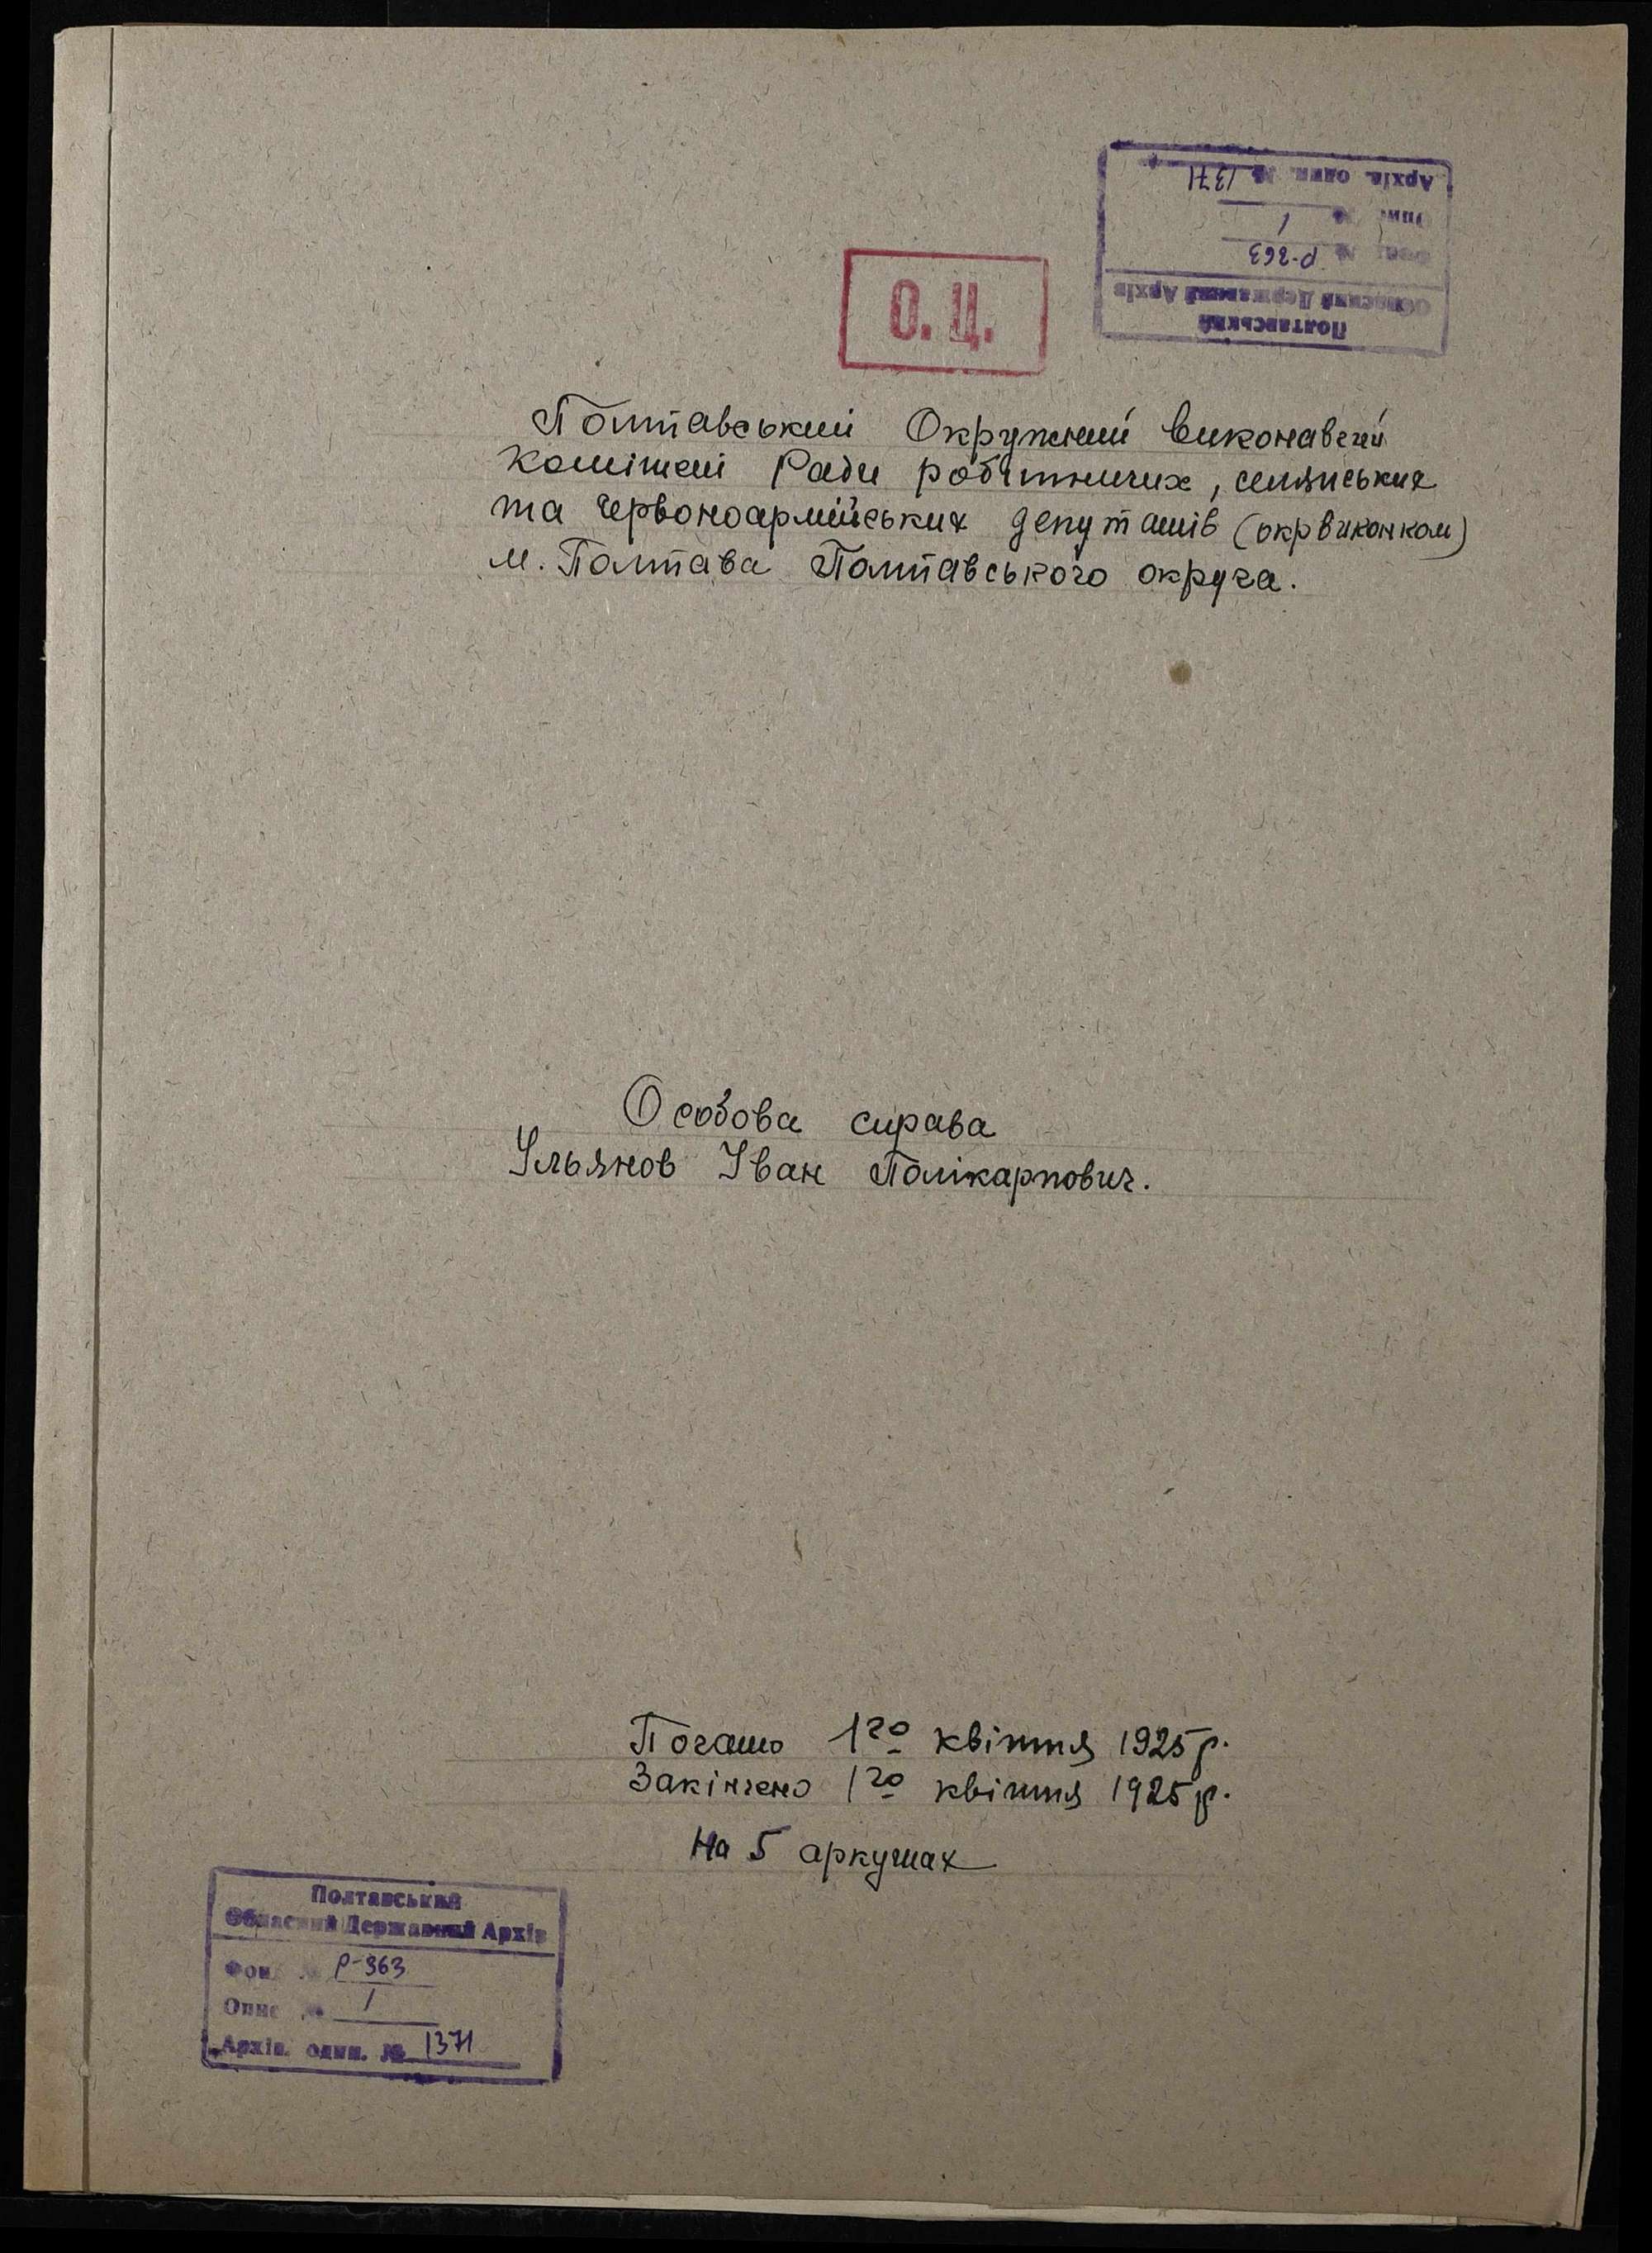 Полтавський
Обласний Державний Архів
Фонд № Р-363
Опис № 1
Архів. один. № 1371
О. Ц.
Полтавський Окружний виконавчий
комітет Ради робітничих, селянських
та червоноармійських депутатів (окрвиконком)
м. Полтава Полтавського округа.
Особова справа
Ульянов Іван Полікарпович.
Почато 1го квітня 1925 р.
Закінчено 1го квітня 1925 р.
На 5 аркушах
Полтавський
Обласний Державний Архів
Фонд № Р-363
Опис № 1
Архів. один. № 1371